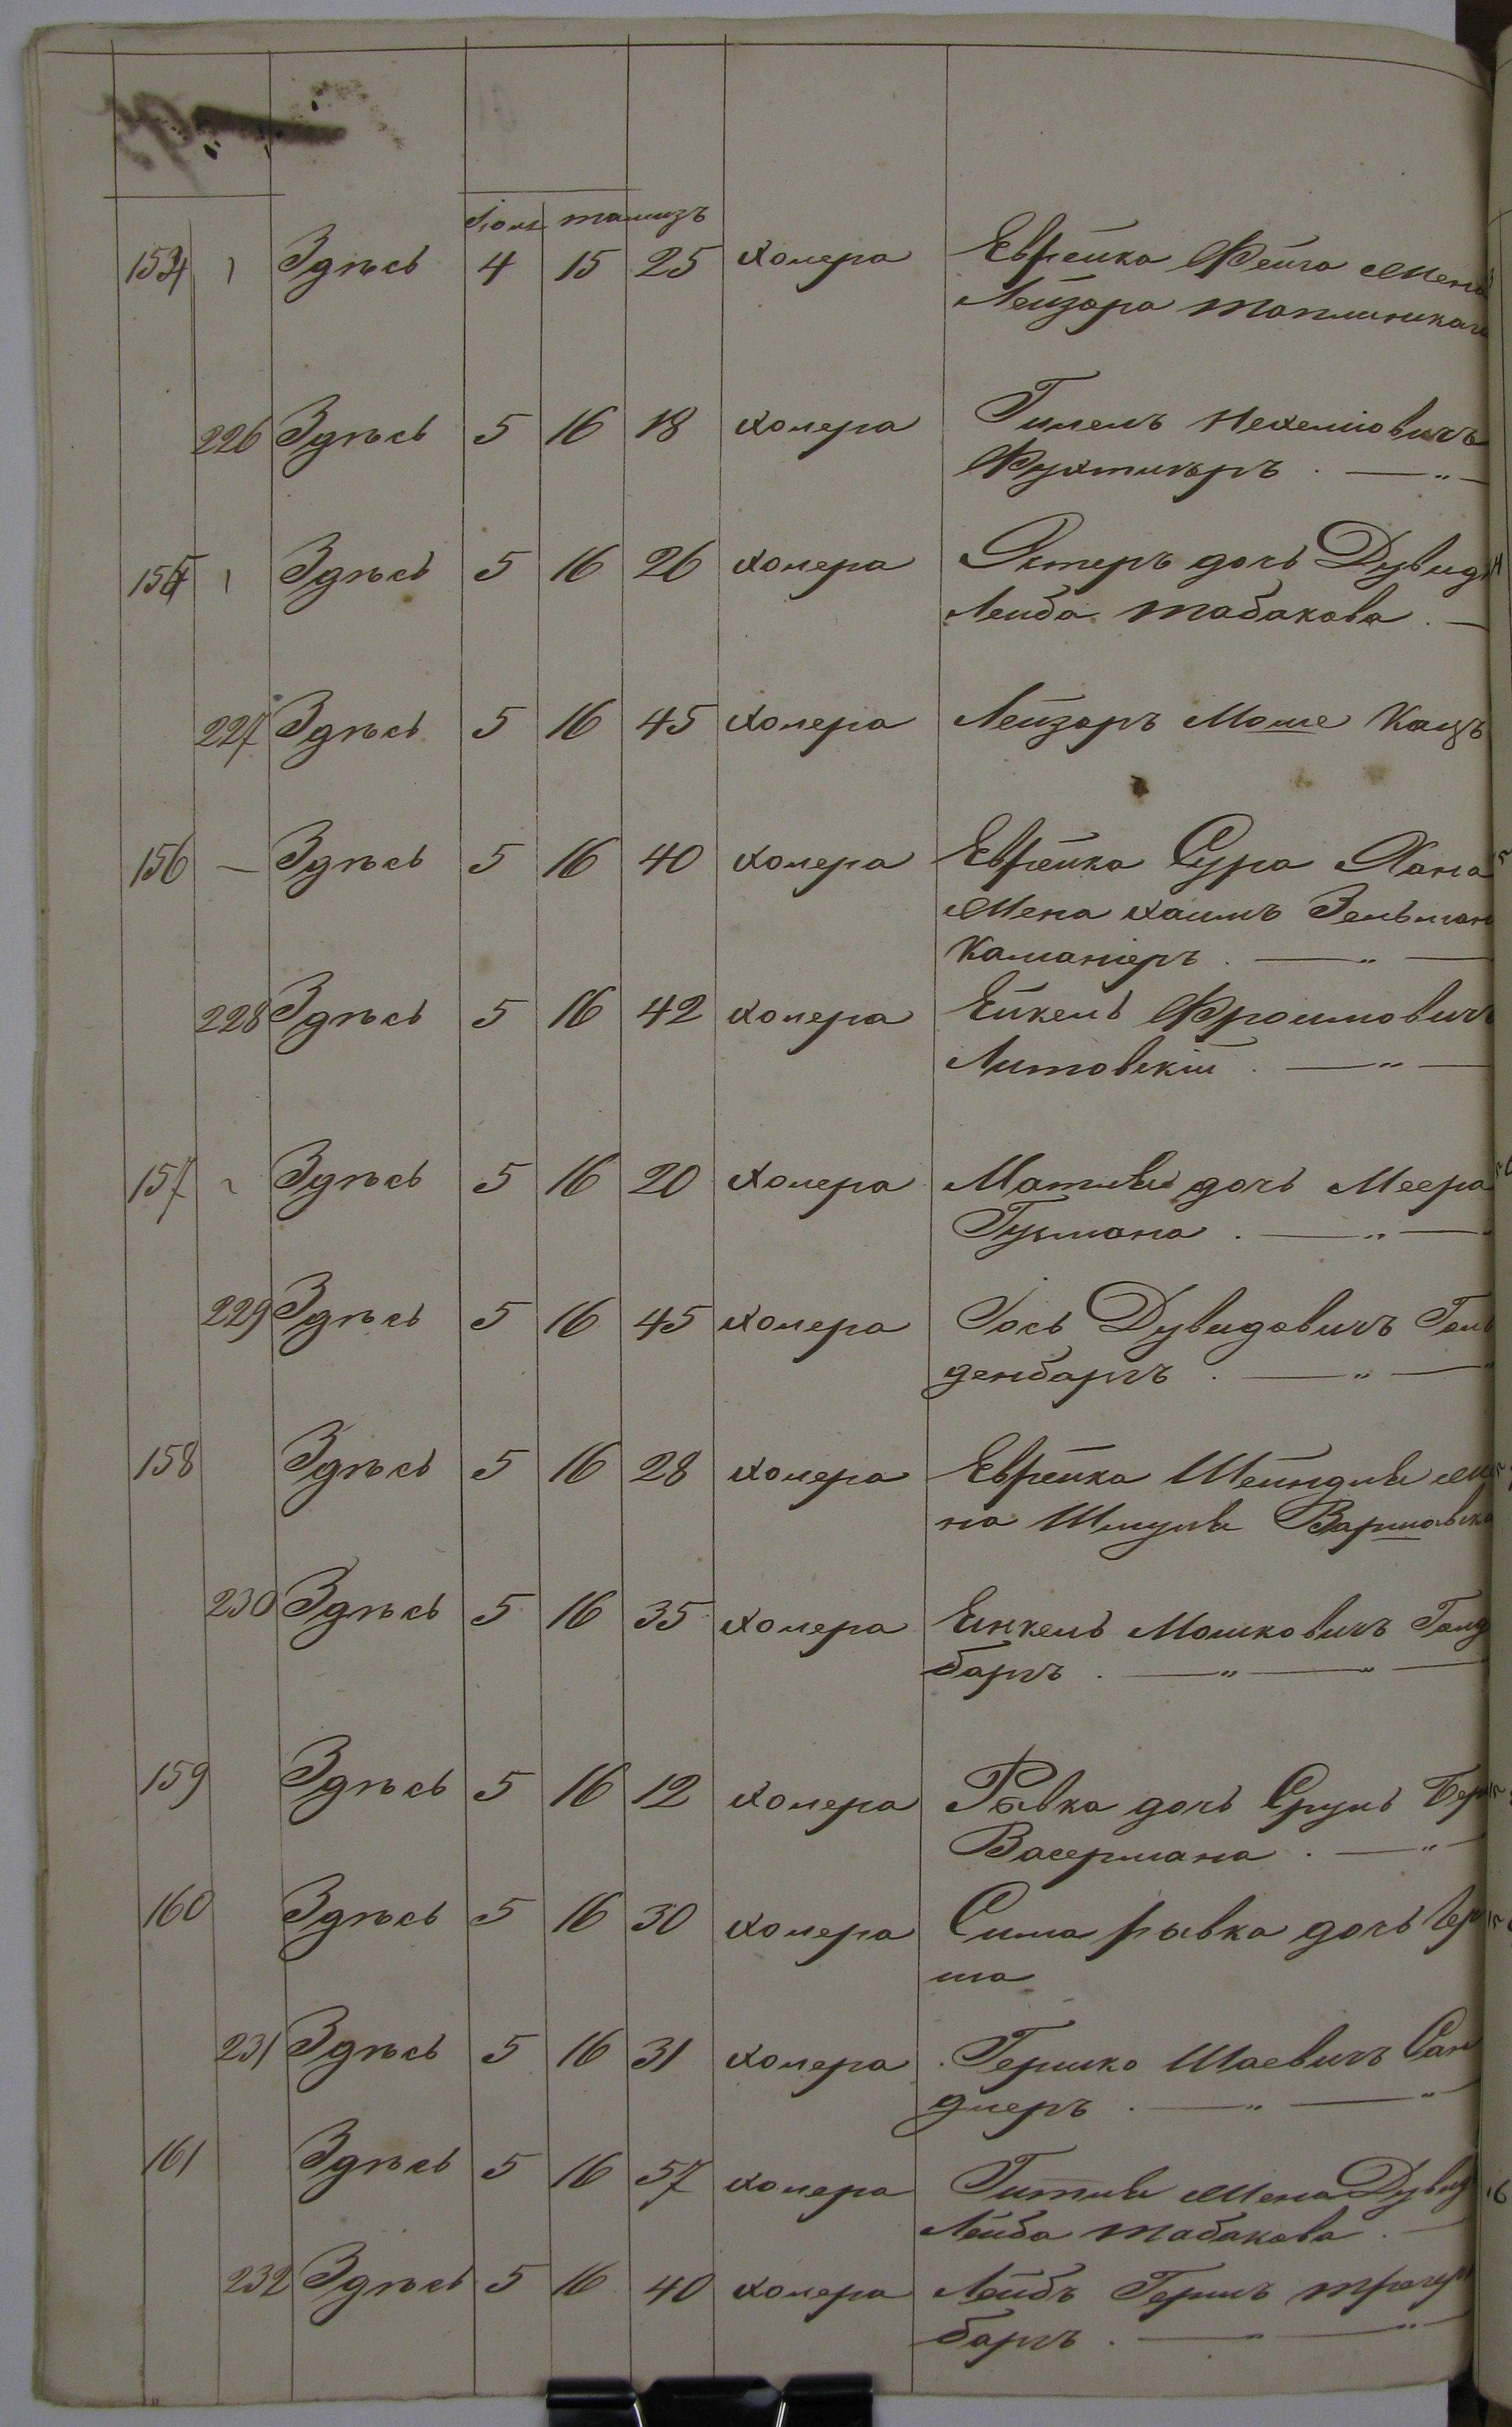 Іюль тамизъ
154 Здѣсь 4 15 25 холера Еврейка Фейга жена
Лейзора
226 Здѣсь 5 16 18 холера Гилель Нехемiовичъ
. — „ —
155 Здѣсь 5 16 26 холера Эстеръ дочь Дувидъ
Лейба Табакова . —
227 Здѣсь 5 16 45 холера Лейзоръ Моше Кацъ
156 — Здѣсь 5 16 40 холера Еврейка Сура Хана
жена Хаимъ Зельман
. — „ —
228 Здѣсь 5 16 42 холера Ейкель Фроимовичъ
Литовскій . — „ —
157 Здѣсь 5 16 20 холера дочь Меера
. — „ —
229 Здѣсь 5 16 45 холера Іось Дувидовичъ Голь
денбаргъ . — „ — „
158 Здѣсь 5 16 28 холера Еврейка Шейндля же
на Шмуля Варшавска
230 Здѣсь 5 16 35 холера Енкель Мошковичъ Голд
баргъ . — „ — „ —
159 Здѣсь 5 16 12 холера Рывка дочь Сруль Бер
Васермана . — „
160 Здѣсь 5 16 30 холера Сима рывка дочь Гер
ша
231 Здѣсь 5 16 31 холера Гершко Шаевичъ Сан
длеръ . — „ — „
161 Здѣсь 5 16 57 холера Гитля жена Дувид
Лейба Табакова . —
232 Здѣсь 5 16 40 холера Лейбъ Гершъ
баргъ . — „ — „